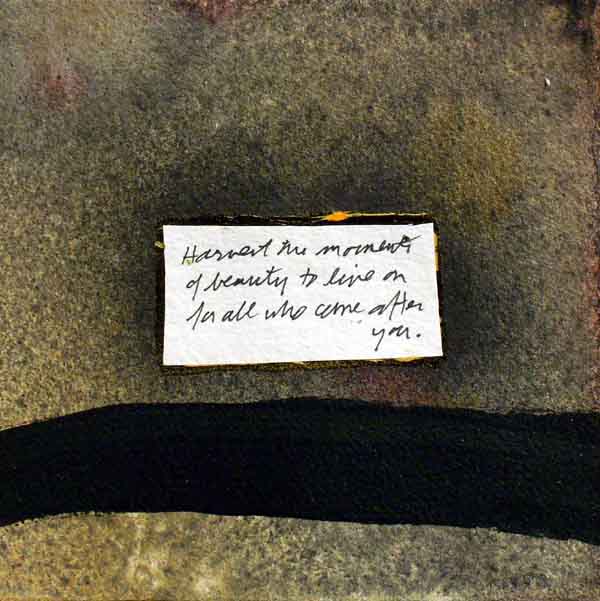 Harvest the moments
of beauty to live on
for all who come after
you.